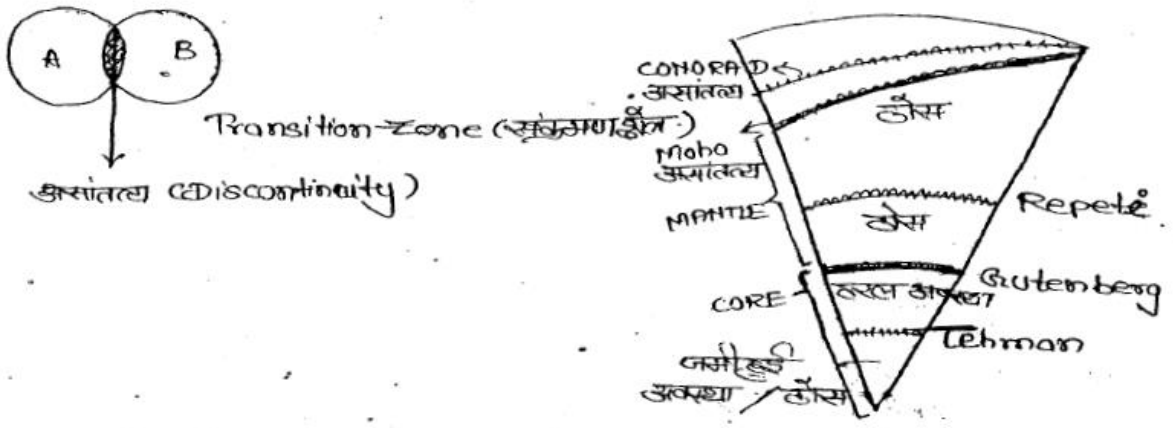 A
B
Transition-zone (संक्रमण क्षेत्र)
असांतत्य (Discontinuity)
CONORAD
असांतत्य
ठोस
Moho
असांतत्य
MANTLE
Repeté
ठोस
Gutenberg
CORE
तरल अवस्था
Lehman
जमी हुई
अवस्था / ठोस